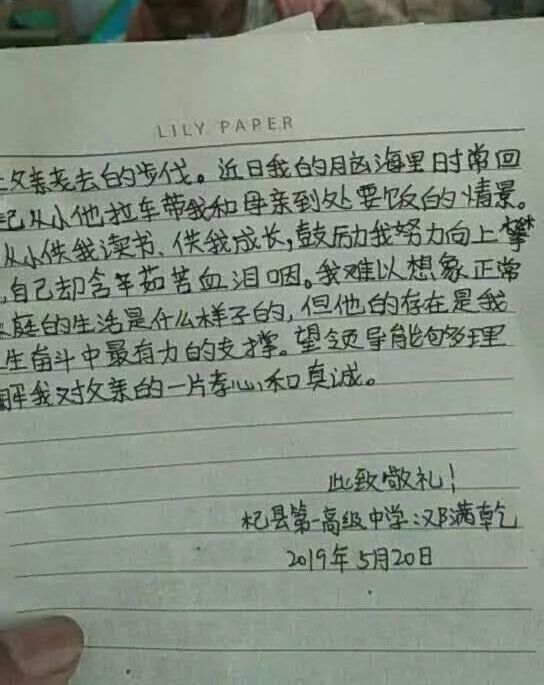 LILY PAPER
父亲老去的步伐。近日我的脑海里时常回
起从小他拉车带我和母亲到处要饭的情景。
从小供我读书、供我成长,鼓励我努力向上攀
,自己却含辛茹苦血泪咽。我难以想象正常
庭的生活是什么样子的,但他的存在是我
生奋斗中最有力的支撑。望领导能够多理
解我对父亲的一片孝心和真诚。
此致敬礼!
杞县第一高级中学:邓满乾
2019年5月20日